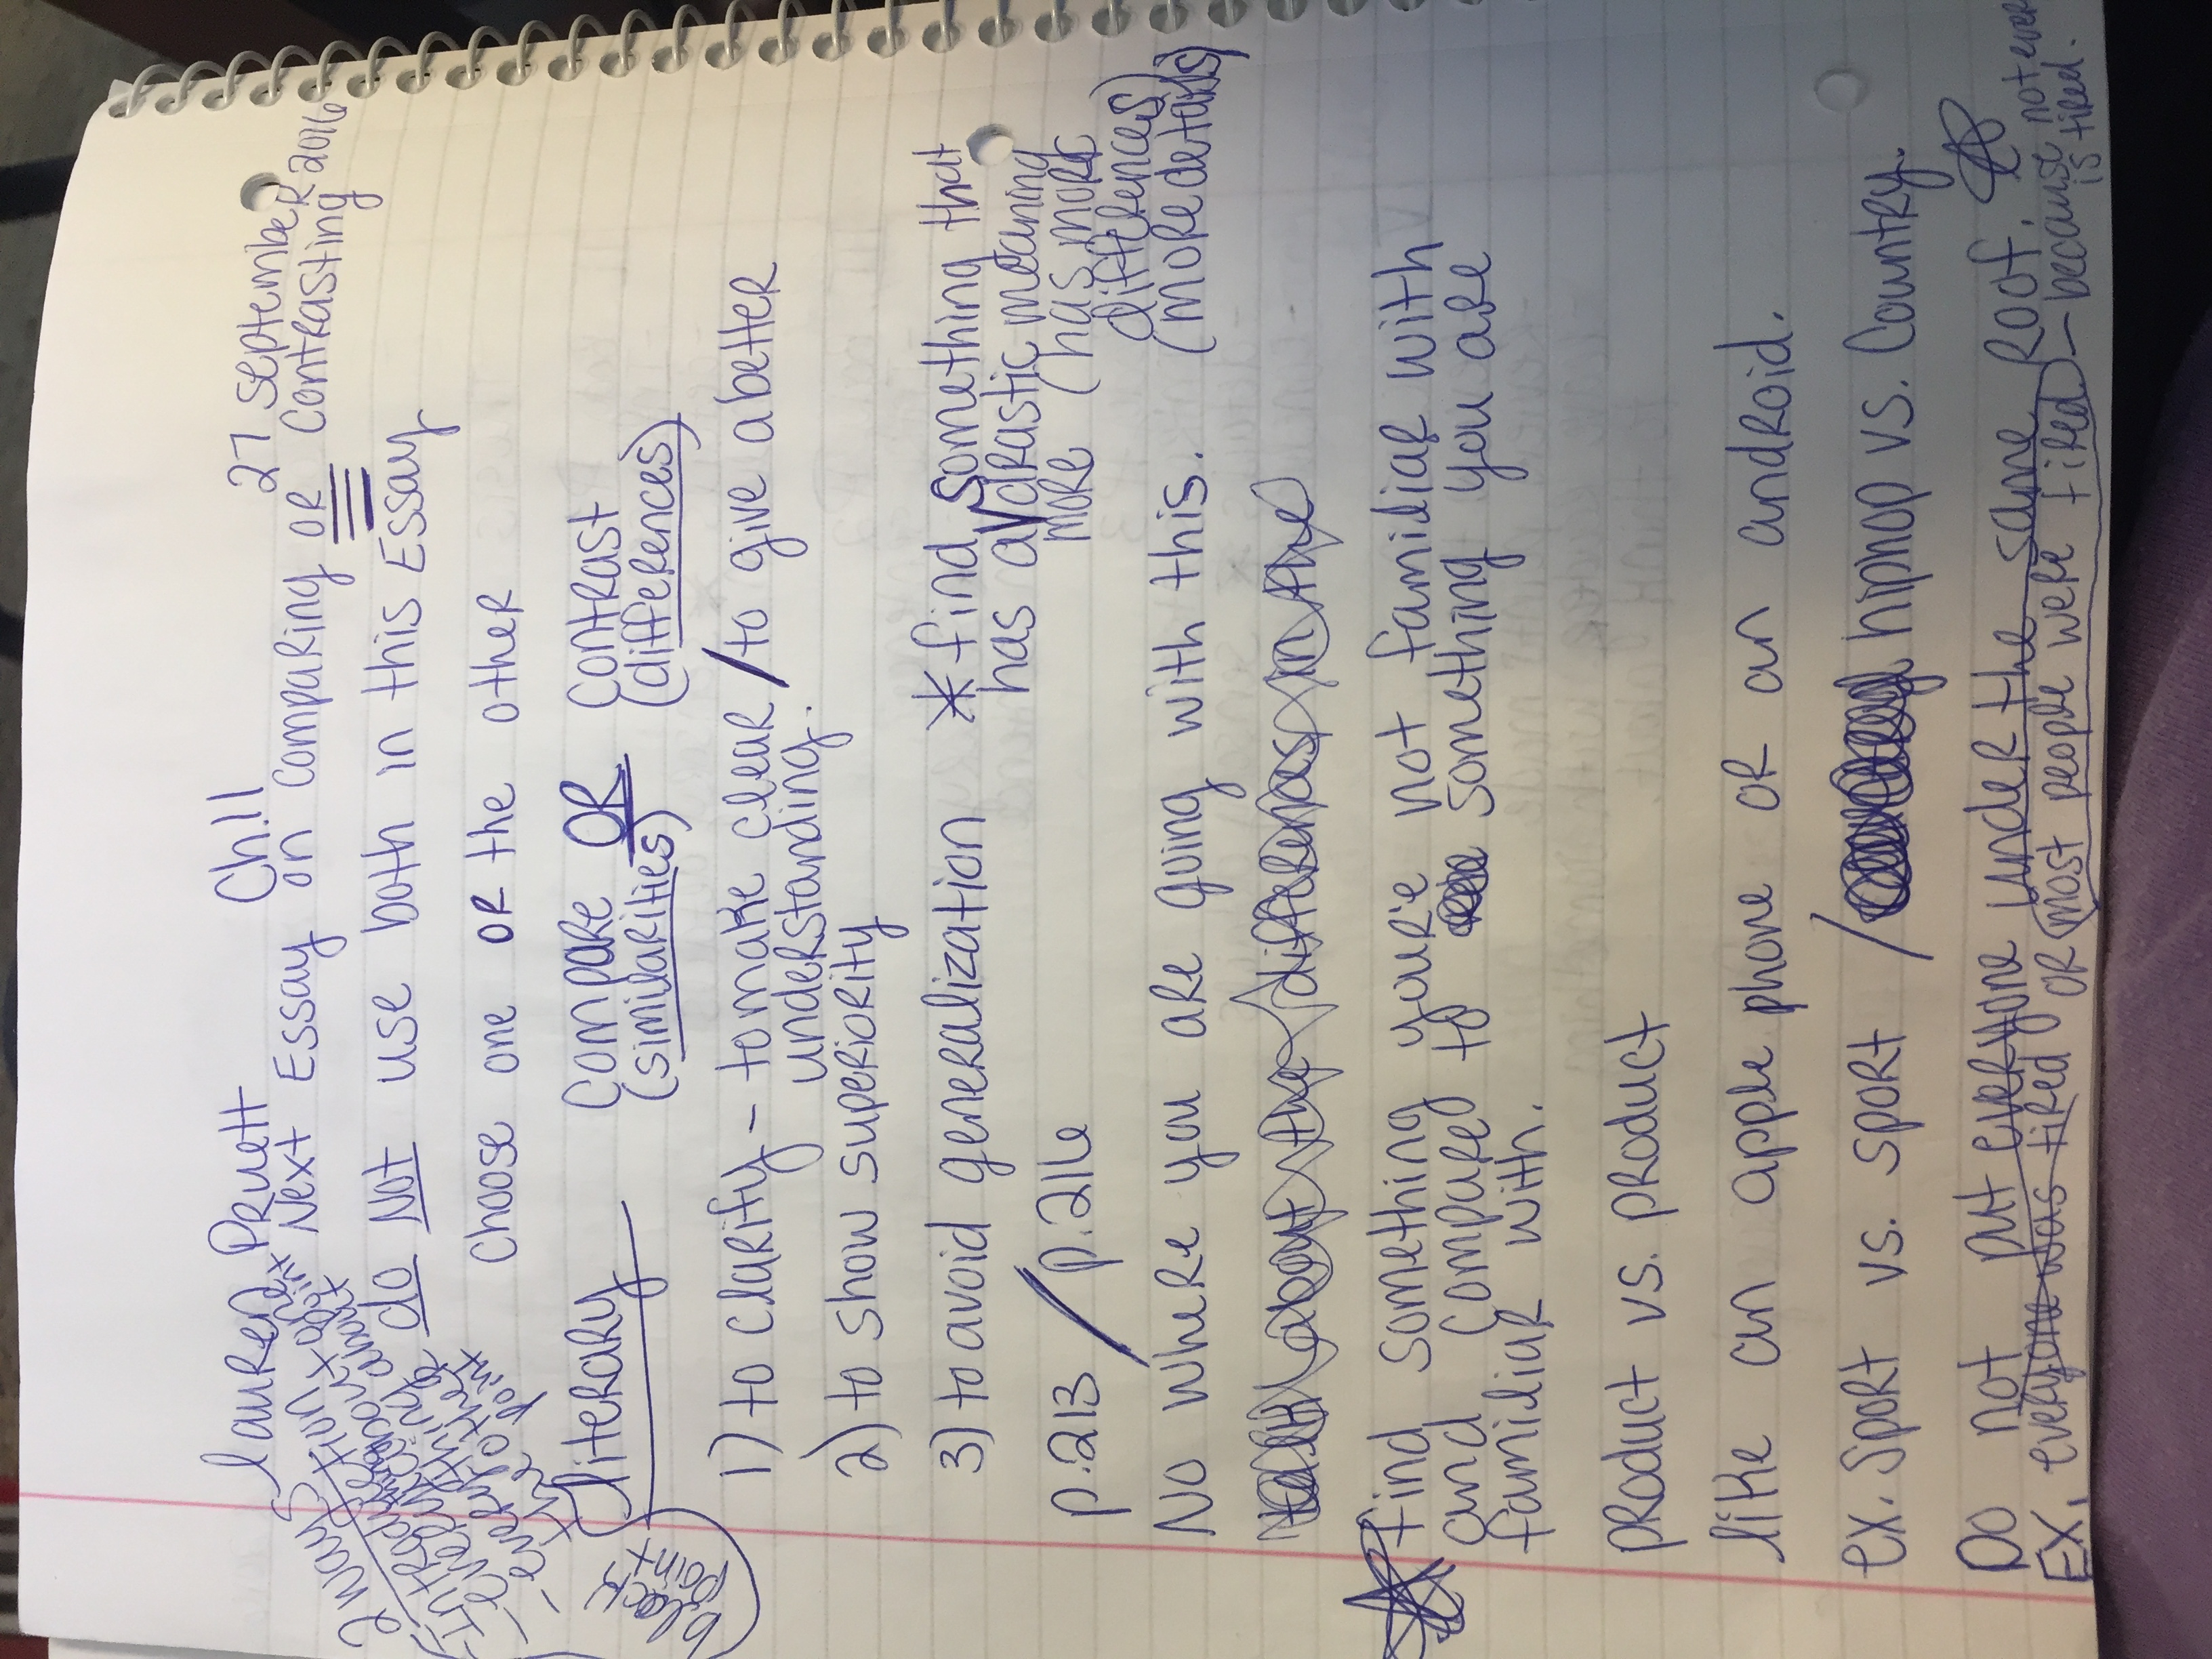 Lauren Pruett Ch.11 27 September 2016
Next Essay on comparing or contrasting
do Not use both in this Essay
choose one OR the other
Literary
Compare OR Contrast
(similarities) (differences)
1) to clarify - to make clear / to give a better
understanding.
2) to show superiority
3) to avoid generalization * find something that
has a drastic meaning
more (has more
differences)
(more details)
p.213 / p.216
No where you are going with this.
Find something you're not familiar with
and compare to something you are
familiar with.
product vs. product
like an apple phone or an android.
ex. Sport vs. sport / hiphop vs. Country.
Do not put everyone under the same roof.
EX. everyone was tired or most people were tired - because not ever
is tired.
2 ways
point